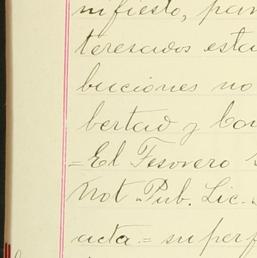 nifiesto, par
teresados esta
buciones no
bertad y Con
=El Tesorero
Not. Pub. Lic.
acta = superf